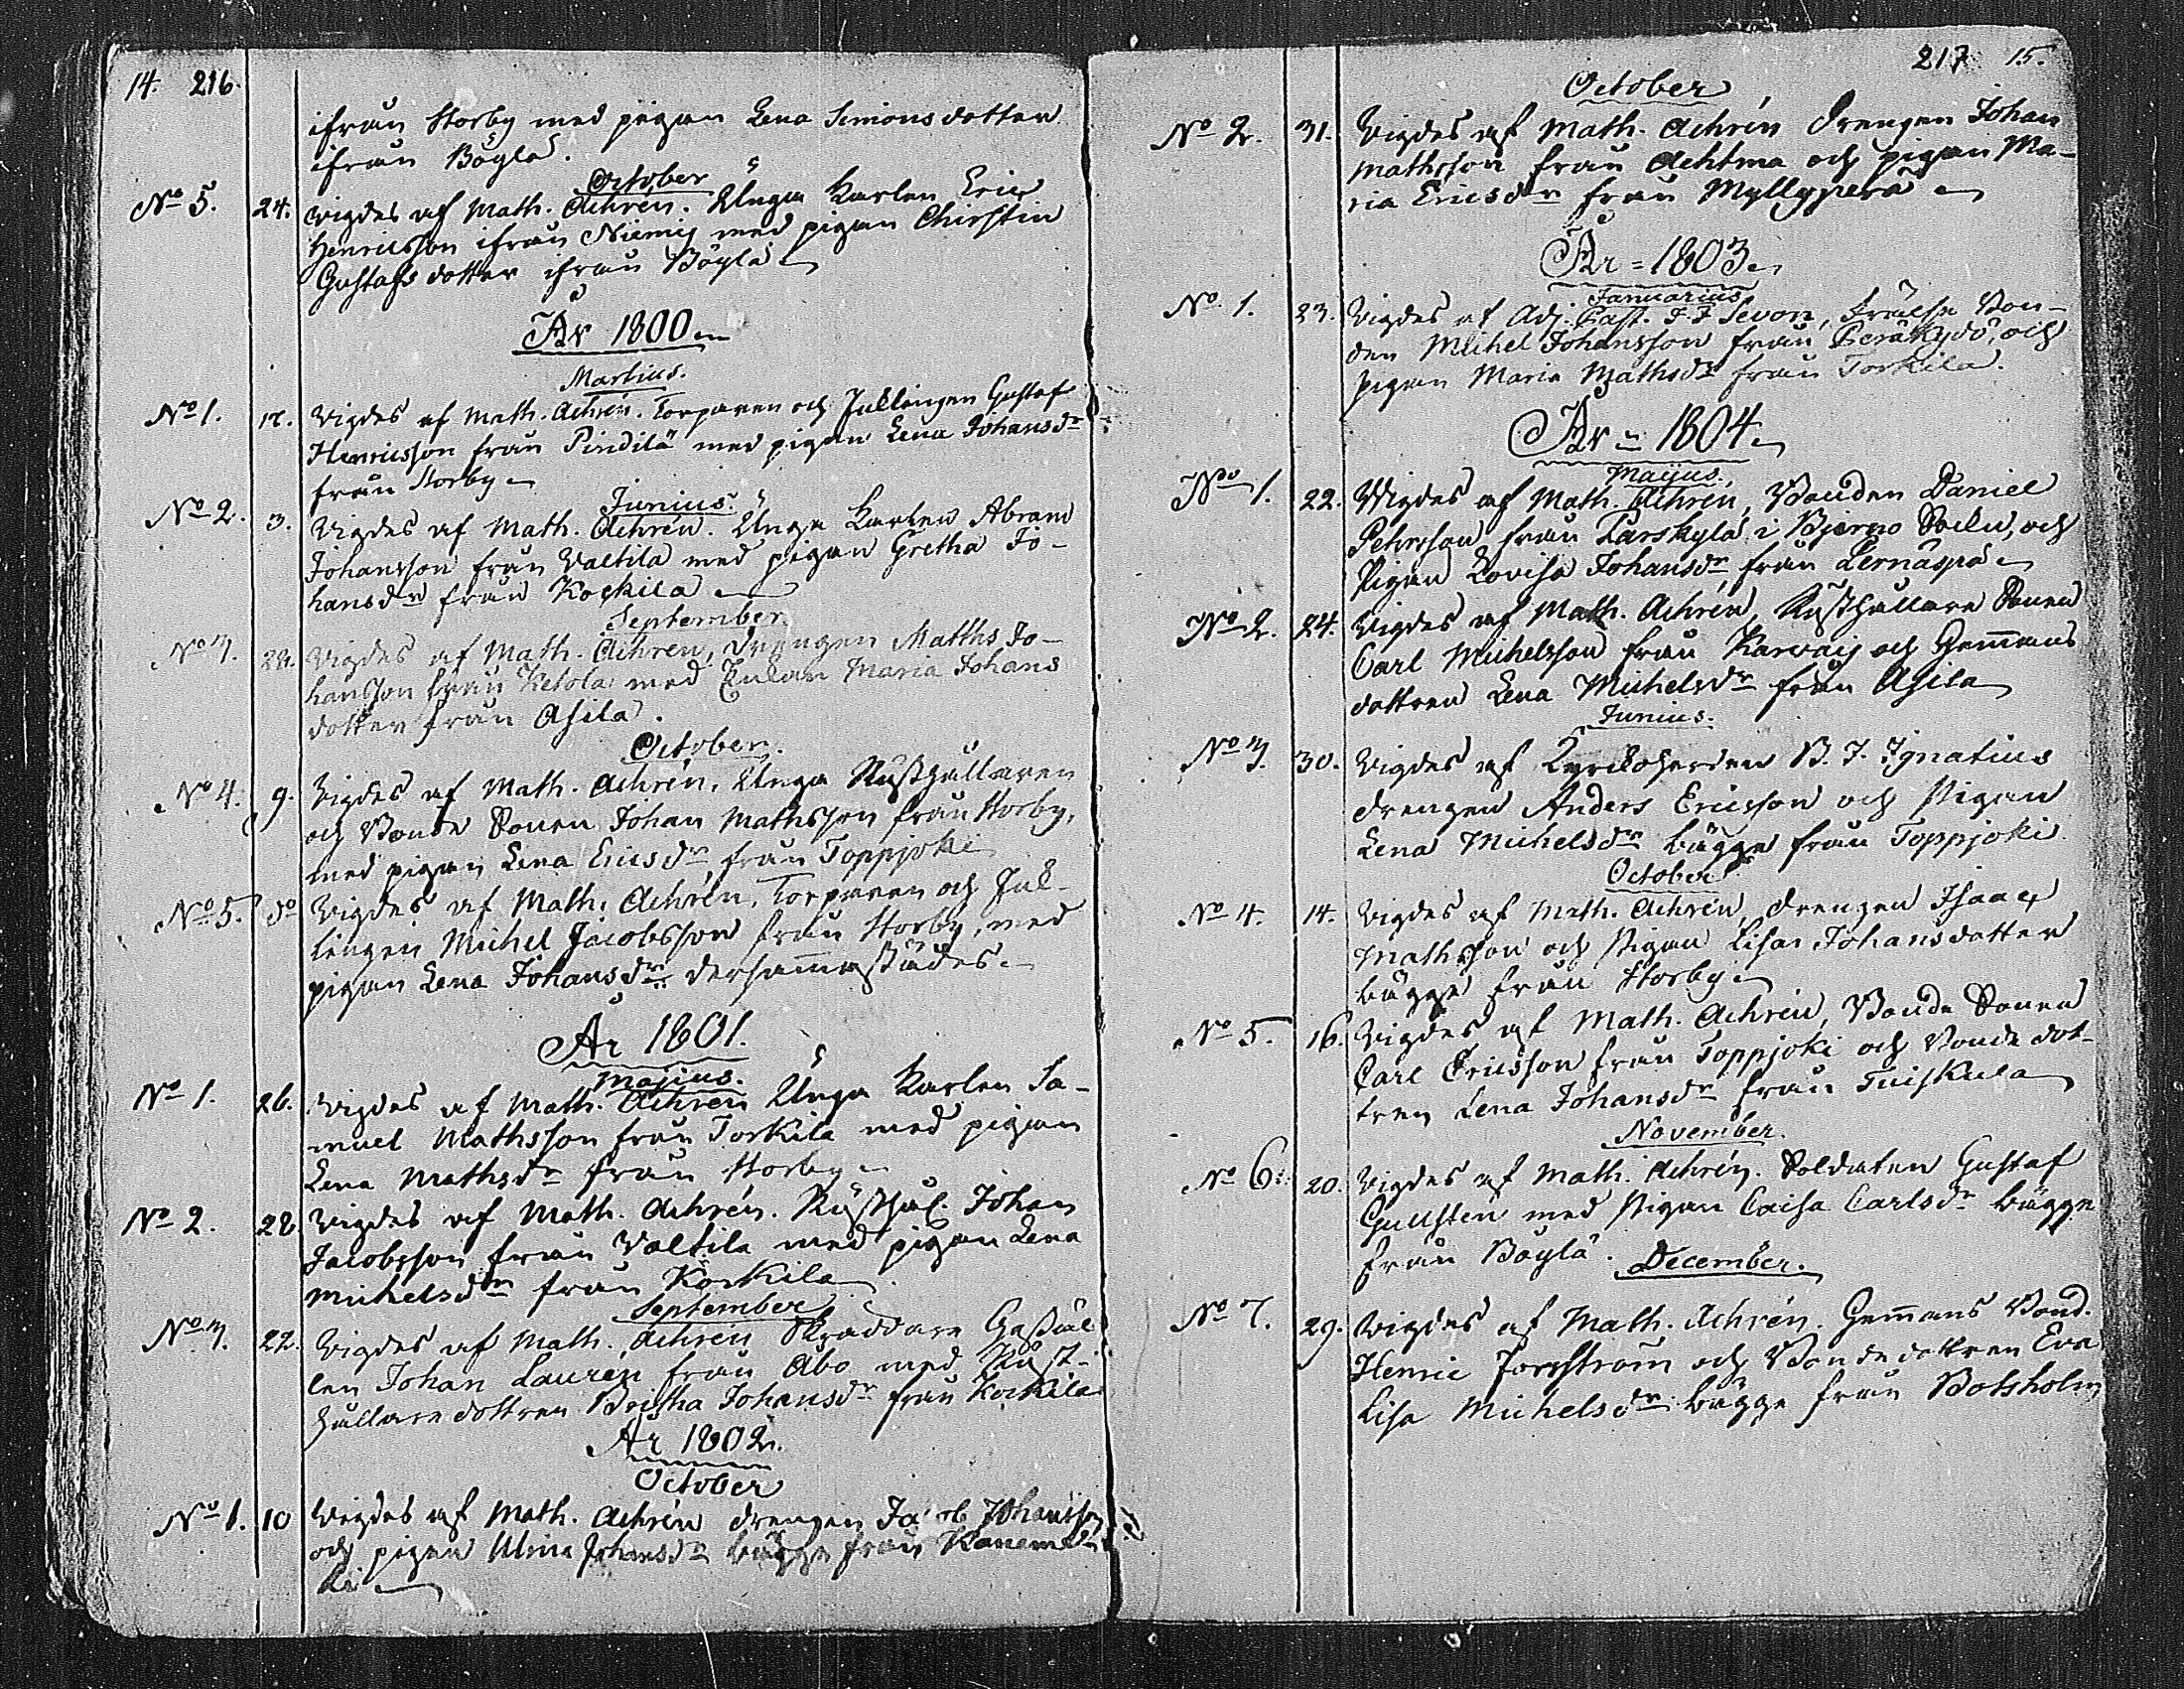 14. 216.
ifrån Storby med pigan Lena Simonsdotter
ifrån Böylä.
October
No 5. 24. Vigdes af Math. Achrén. Unga Karlen Eric
Henricsson ifrån Niemis med pigan Christin
Gustafsdotter ifrån Böylä
År 1800
Martius.
No 1. Vigdes af Math. Achrén. Torparen och Gustaf
Henricsson från Pindilä med pigan Lena Johansdr
från Storby
Junius.
No 2. 3. Vigdes af Math. Achrén. Unga Karlen Abram
Johansson från Valtila med pigan Gretha Jo-
hansdr från Kockila
September
No 3. 28. Vigdes af Math. Achrén, Drängen Matths Jo-
hansson från Ketola med Enkan Maria Johans
dotter från Asila.
October.
No 4. 9. Vigdes af Math. Achrén. Unga Rusthållaren
och Bonde Sonen Johan Mathsson från Storby,
med pigan Lena Ericsdr från Toppjoki
No 5. do Vigdes af Math. Achrén, Torparen och
Michel Jacobsson från Storby, med
pigan Lena Johansdr dersammastädes.
År 1801.
Majus.
No 1. 26. Vigdes af Math. Achrén Unga Karlen Sa-
muel Mathsson från Torkila med pigan
Lena Mathsdr från Storby
No 2. 28. Vigdes af Math. Achrén. Rusthål. Johan
Jacobsson från Valtila med pigan Lena
Michelsdr från Kockila
September
No 3. 22. Vigdes af Math. Achrén Skräddare Gesäl
len Johan Lauren från Åbo med Rust-
hållaredottren Britha Johansdr från Kockila
År 1802.
October
No 1. 10 Vigdes af Math. Achrén drengen Jacob Johansson
och pigan Ulrica Johansdr bägge från Kanemä-
ki
217 15.
October
No 2. 31. Vigdes af Math. Achrén Drengen Johan
Mathsson från Achtma och pigan Ma-
ria Ericsdr från Myllyperä
År = 1803
Januarius
No 1. 23. Vigdes af Adj. Past. J. F. Sevon, Frälse Bon-
den Michel Johansson från Peräkydö, och
pigan Maria Mathsdr från Torkila.
År = 1804
Majus.
No 1. 22. Vigdes af Math. Achrén, Bonden Daniel
Petersson från Parskylä i Bjerno Sokn, och
Pigan Lovisa Johansdr från Pernäspä
No 2. 24. Vigdes af Math. Achrén, Rusthållare Sonen
Carl Michelsson från Karvais och Hemmans
dottren Lena Michelsdr från Asila
Junius.
No 3. 30. Vigdes af Kyrkoherden B. J. Ignatius
drengen Anders Ericsson och Pigan
Lena Michelsdr bägge från Toppjoki
October
No 4. 14. Vigdes af Math. Achrén, drengen Isaac
Mathsson och Pigan Lisa Johansdotter
bägge från Storby
No 5. 16. Vigdes af Math. Achrén, Bonde Sonen
Carl Ericsson från Toppjoki och Bonde dot-
tren Lena Johansdr från Tuiskula
November.
No 6. 20. Vigdes af Math. Achrén. Soldaten Gustaf
Gullsten med Pigan Caisa Carlsdr bägge
från Böylä.
December.
No 7. 29. Vigdes af Math. Achrén. Hemmans Bond.
Henric Forsström och Bondedottren Eva
Lisa Michelsdr bägge från Botsholm